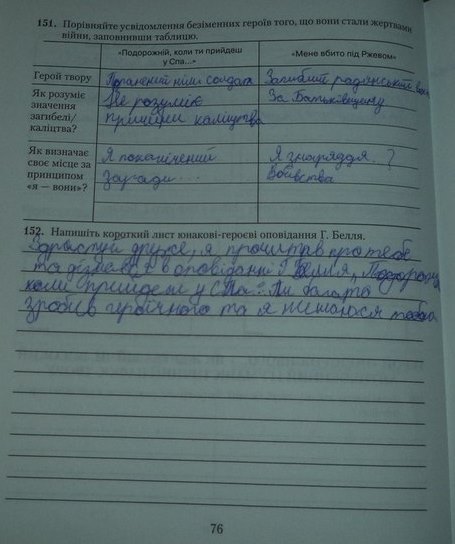 151. Порівняйте усвідомлення безіменних героїв того, що вони стали жертвами
війни, заповнивши таблицю.
«Подорожній, коли ти прийдеш
у Спа...»
«Мене вбито під Ржевом»
Герой твору
Поранений німи солдат
Загиблий радянський
Як розуміє
значення
загибелі/
каліцтва?
Не розуміє
причини каліцтва
За Батьківщину
Як визначає
своє місце за
принципом
«я — вони»?
Я покалічений
Заради...
Я знаряддя ?
Вбивства
152. Напишіть короткий лист юнакові-героєві оповідання Г. Белля.
Здрастуй друже, я прочитав про тебе
та в оповіданні Г Белля,
коли прийдеш у Спа? Ти багато
зробив героїчного та я
76